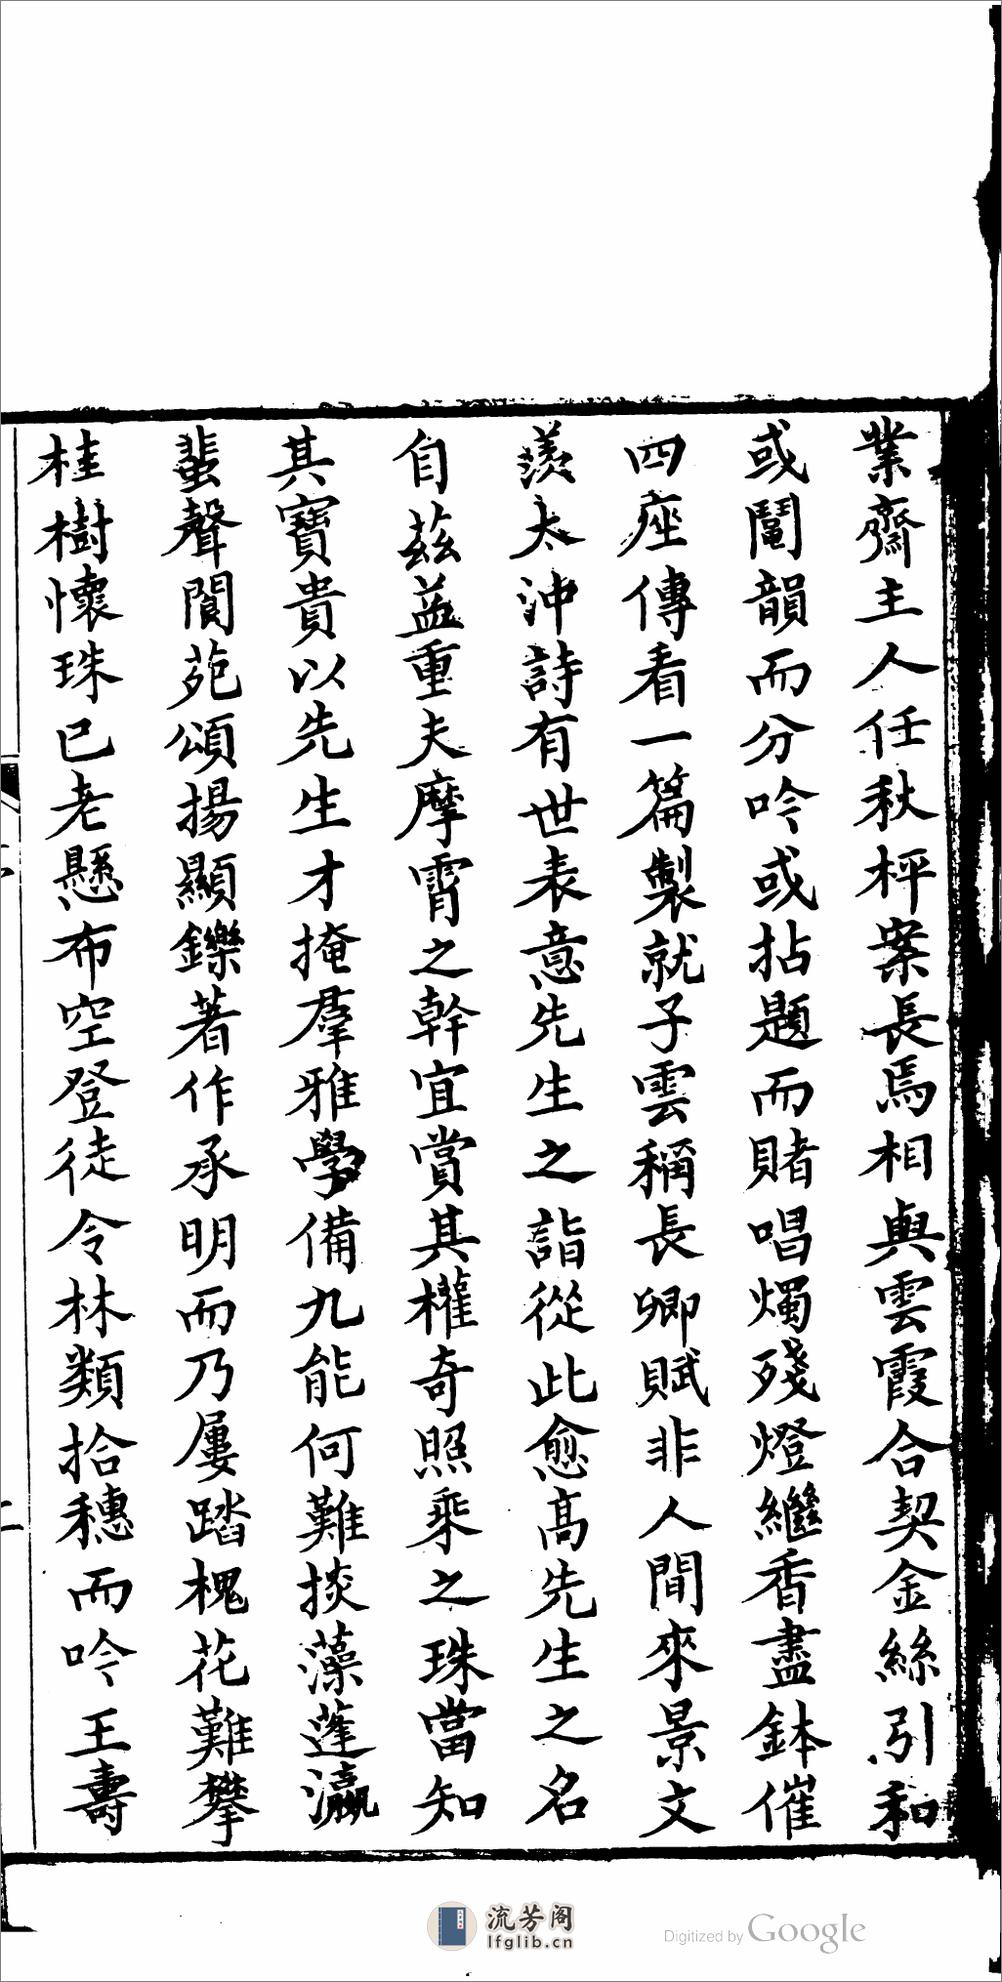 業齋主人任秋枰案長焉相與雲霞合契金絲引和
或鬮韻而分吟或拈題而賭唱燭殘燈繼香盡鉢催
四座傳看一篇製就子雲稱長卿賦非人間來景文
羨太沖詩有世表意先生之詣從此愈高先生之名
自茲益重夫摩霄之幹宜賞其權奇照乘之珠當知
其寶貴以先生才掩羣雅學備九能何難掞藻蓬瀛
蜚聲閬苑頌揚顯鑠著作承明而乃屢踏槐花難攀
桂樹懷珠已老懸布空登徒令林類拾穗而吟王壽
流芳阁
lfglib.cn
Digitized by Google